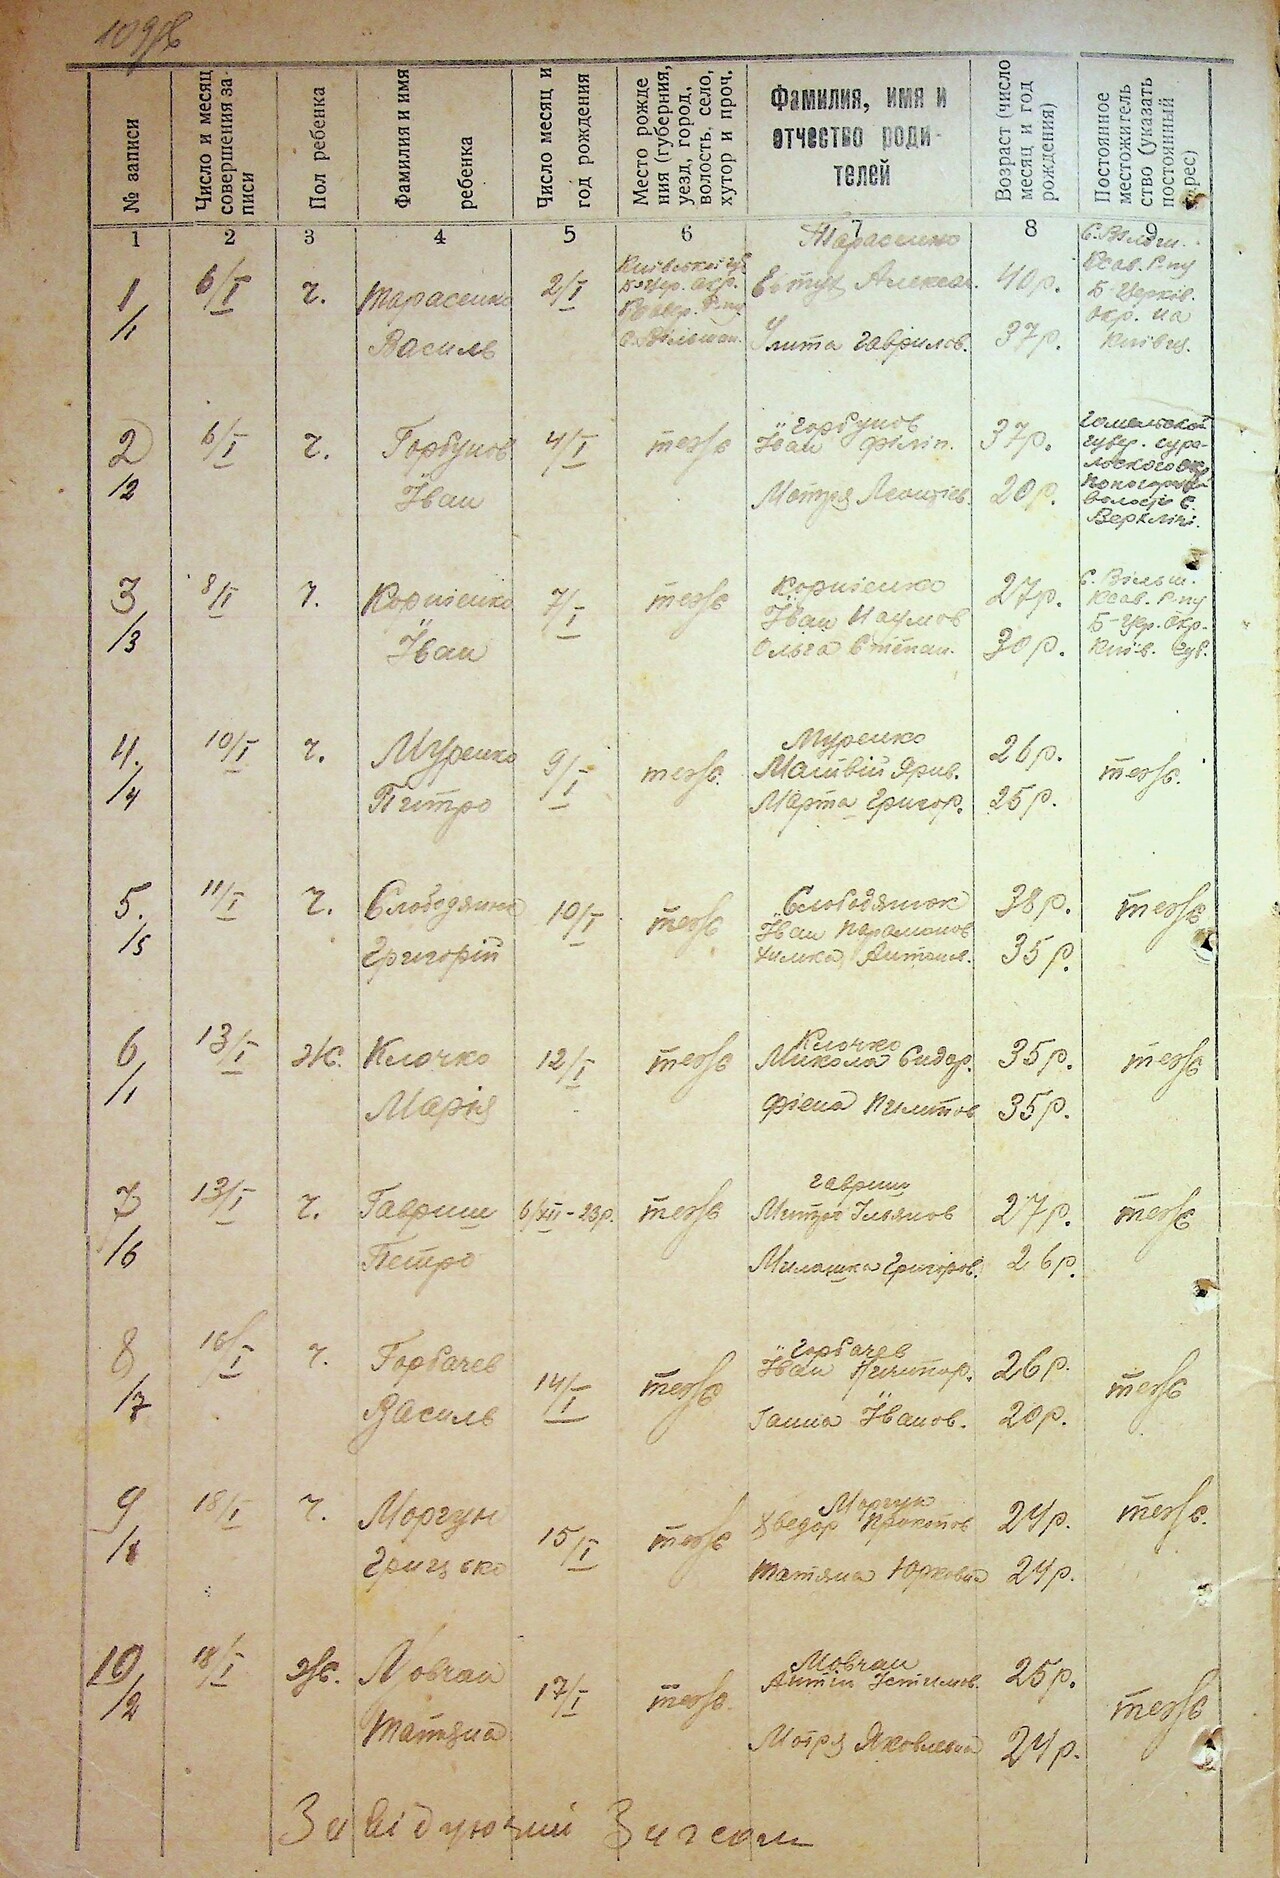 № записи
Число и месяц
совершения за-
писи
Пол ребенка
Фамилия и имя
ребенка
Число месяц и
год рождения
Место рожде
ния (губерния,
уезд, город,
волость, село,
хутор и проч.
Фамилия, имя и
отчество роди-
телей
Возраст (число
месяц и год
рождения)
Постоянное
местожитель
ство (указать
постоянный
1 2 3 4 5 6 7 8 9
1
/1
6/I
ч.
Тарасенко
Василь
2/I
Київської
Тарасенко
Алексан.
Улита Гаврилов.
40р.
37р.
с. Вільш.
Ксав. р-ну
Б-Церків.
окр. на
Київщ.
2
/2
6/I
ч.
Горбунов
Їван
4/I
теж
Горбунов
Їван Філіп.
Мотря Леонтіев.
37р.
20р.
Гомельської
губер.
волости с.
3
/3
8/II
ч.
Корнієнко
Їван
7/I
теж
Корнієнко
Їван Наумов
Ольга Степан.
27р.
30р.
с. Вільш.
Ксав. р-ну
Б-Цер. окр.
Київ. губ.
4.
/4
10/I
ч.
Муренко
Питро
9/I
теж.
Муренко
Матвій Ярив.
Марта Григор.
26р.
25р.
теж.
5.
/5
11/I
ч.
Слободянюк
Григорій
10/I
теж
Слободянюк
Їван Парамонов
38р.
35р.
теж
6
/1
13/I
ж.
Клочко
Марія
12/I
теж
Клочко
Микола Сидор.
Фієна Пилипов
35р.
35р.
теж
7
/6
13/I
ч.
Гавриш
Петро
6/XII-23р.
теж
Гавриш
Митро Ільянов
Милашка Григоров.
27р.
26р.
теж
8
/7
16/I
ч.
Горбачев
Василь
14/I
теж
Горбачев
Їван Ничипор.
Ганна Їванов.
26р.
20р.
теж
9
/8
18/I
ч.
Моргун
Грицько
15/I
теж
Моргун
Хведор Прокопов
Татяна Юрковна
24р.
24р.
теж.
10
/2
18/I
ж.
Мовчан
Татяна
17/I
теж.
Мовчан
Антін Устимов.
Мотря Яковлевна
25р.
24р.
теж
Завідуючий Загсом